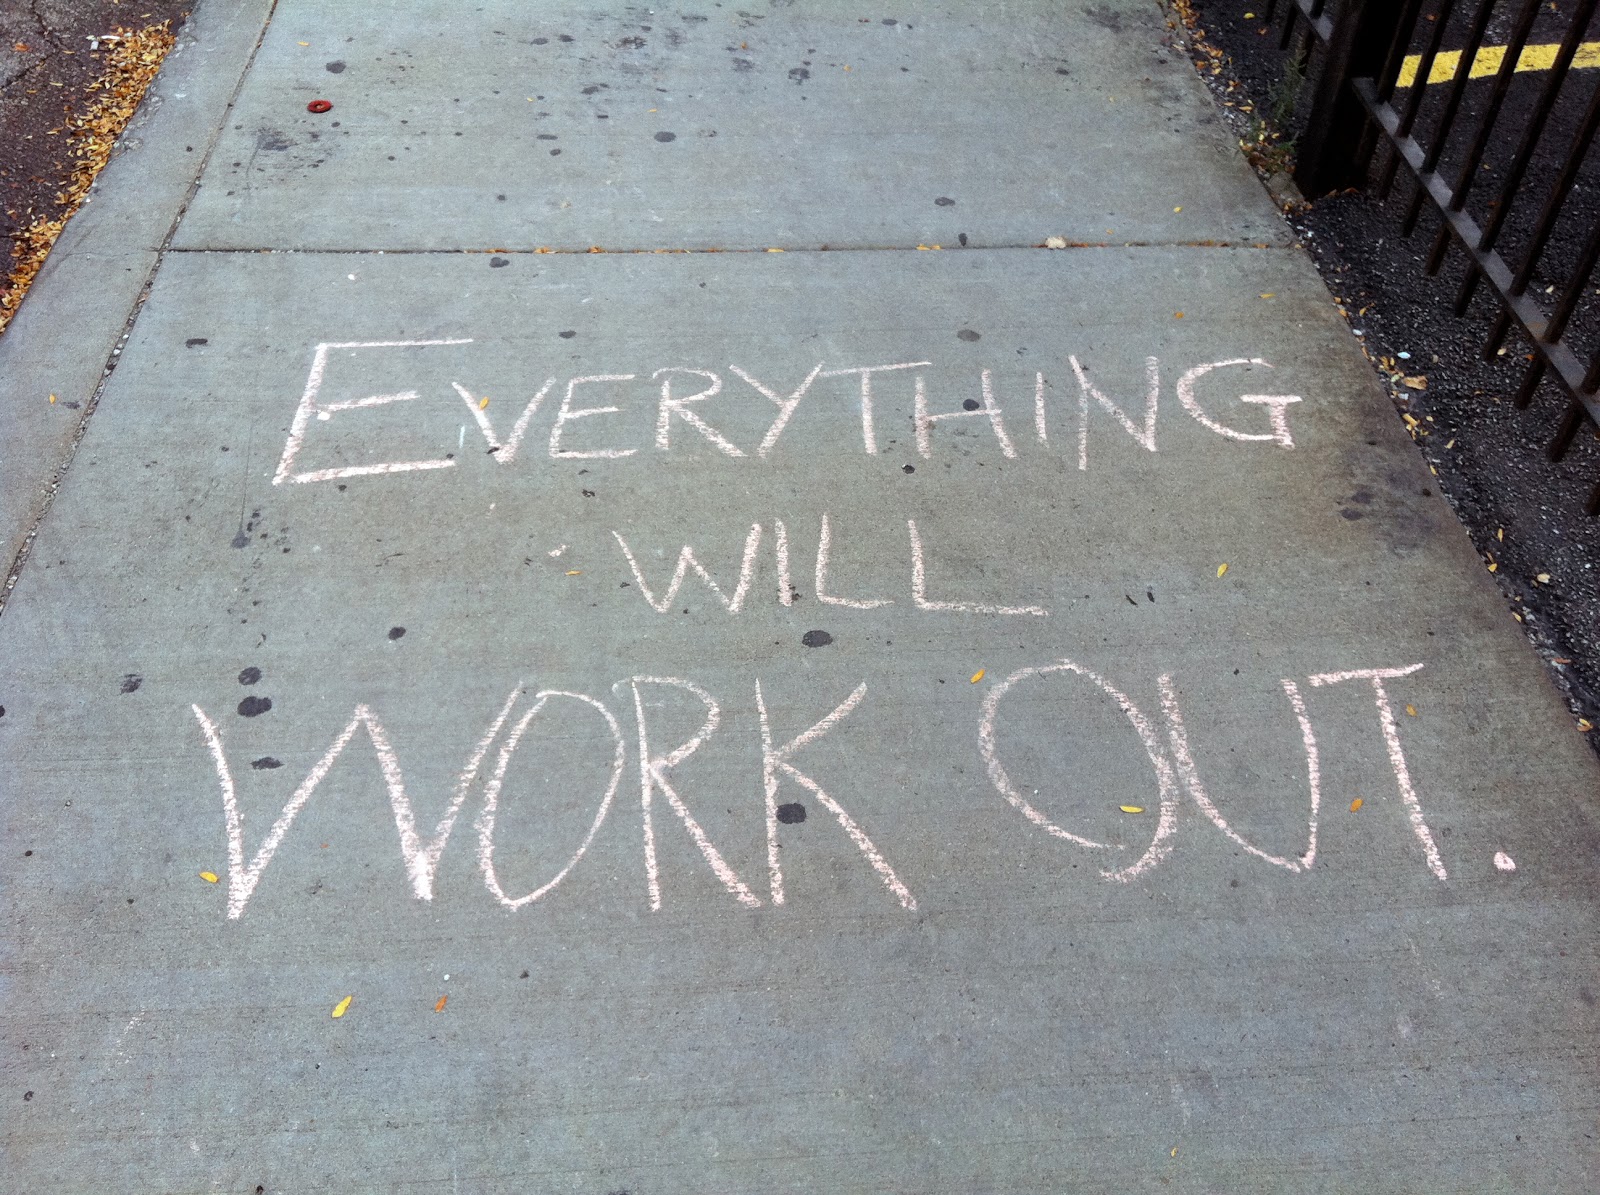 EVERYTHING
WILL
WORK OUT.